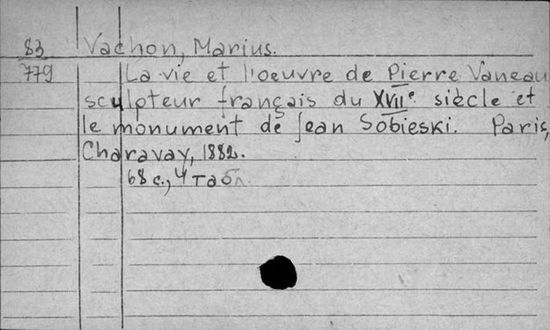 83 Vachon, Marius.
779 La vie et l'oeuvre de Pierre Vaneau
sculpteur français du XVIIe siècle et
le monument de Jean Sobieski. Paris,
Charavay, 1882.
68 с., 4 табл.